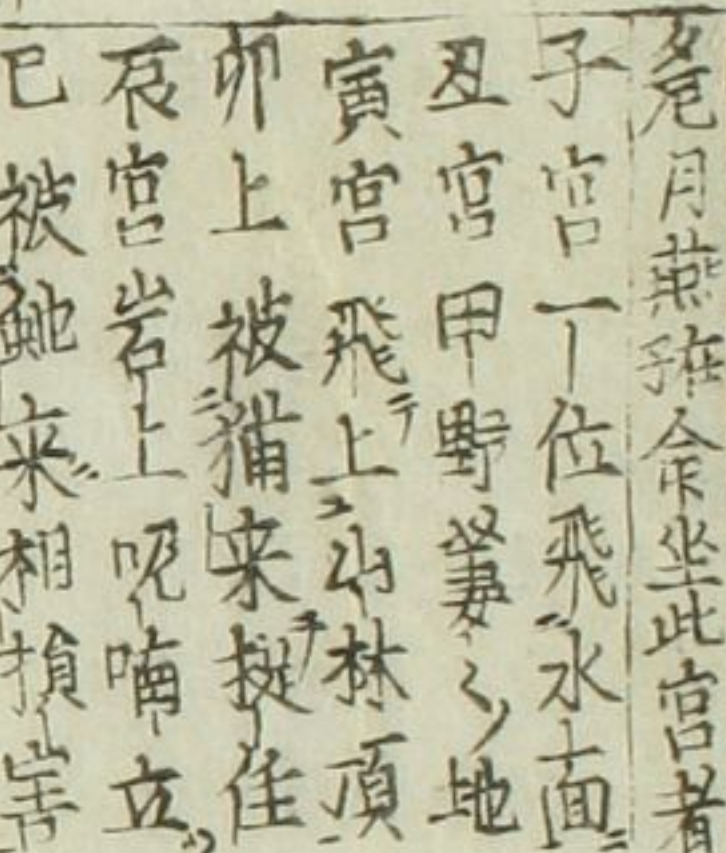 危月燕在子命坐此宮者
子宮一位飛水面
丑宮甲野萋〻地
寅宮飛上山林頂
卯上被猫来捉住
辰宮岩上呢喃立
巳被虵来相損害